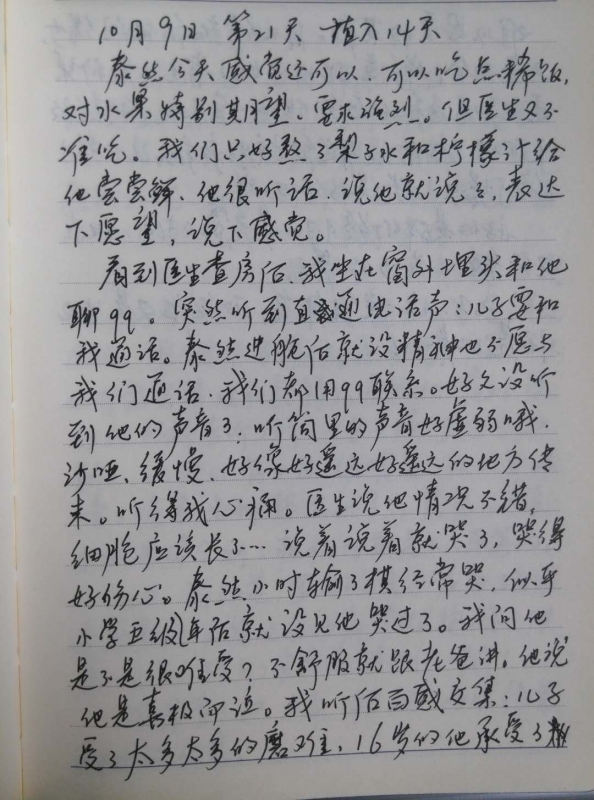 10月9日 第21天 植入14天
泰然今天感觉还可以.可以吃点稀饭,
对水果特别期望、要求强烈。但医生又不
准吃。我们只好熬了梨子水和柠檬汁给
他尝尝鲜、他很听话.说他就说了,表达
下愿望,说下感觉。
看到医生查房后.我坐在窗外埋头和他
聊qq。突然听到直通电话声:儿子要和
我通话。泰然进舱后就没精神也不愿与
我们通话.我们都用qq联系。好久没听
到他的声音了;听筒里的声音好虚弱哦.
沙哑、缓慢、好像好遥远好遥远的地方传
来。听得我心痛。医生说他情况不错,
细胞应该长了… 说着说着就哭了,哭得
好伤心。泰然小时输了棋经常哭,似乎
小学五级年后就没见他哭过了。我问他
是不是很难受?不舒服就跟老爸讲。他说
他是喜极而泣。我听后百感交集:儿子
受了太多太多的磨难、16岁的他承受了